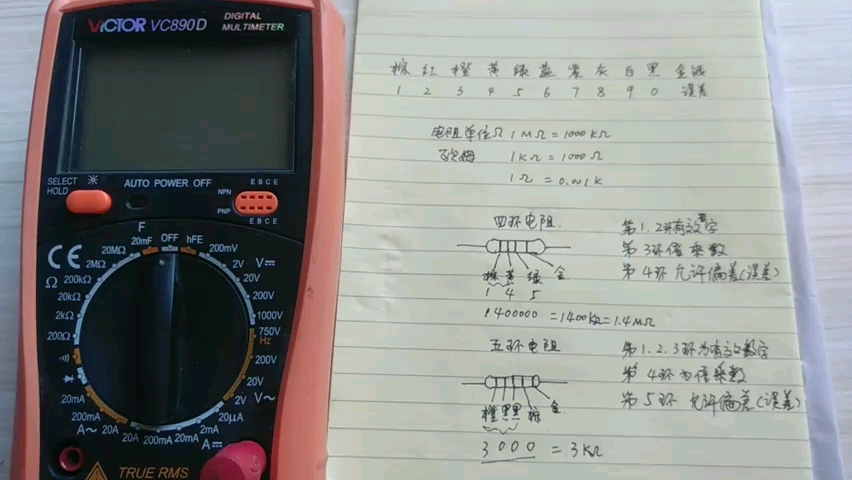 VICTOR VC890D
DIGITAL
MULTIMETER
SELECT
HOLD
AUTO POWER OFF
NPN
PNP
E B C E
E B C E
F
20mF
OFF
hFE
200mV
2V
V
20V
200V
1000V
750V
Hz
200V
20V
2V
V~
20μA
2mA
A
20mA
200mA
20A
20A
A~
200mA
20mA
200Ω
2kΩ
20kΩ
200kΩ
2MΩ
20MΩ
Ω
CE
TRUE RMS
棕 红 橙 黄 绿 蓝 紫 灰 白 黑 金银
1 2 3 4 5 6 7 8 9 0 误差
电阻单位Ω 1MΩ=1000KΩ
欧姆 1KΩ=1000Ω
1Ω=0.001K
四环电阻.
第1.2环有效数字
第3环倍乘数
第4环允许偏差(误差)
棕黄绿 金
1 4 5
1400000=1400KΩ=1.4MΩ
五环电阻
第1.2.3环为有效数字
第4环为倍乘数
第5环 允许偏差(误差)
橙黑黑棕 金
3000=3KΩ